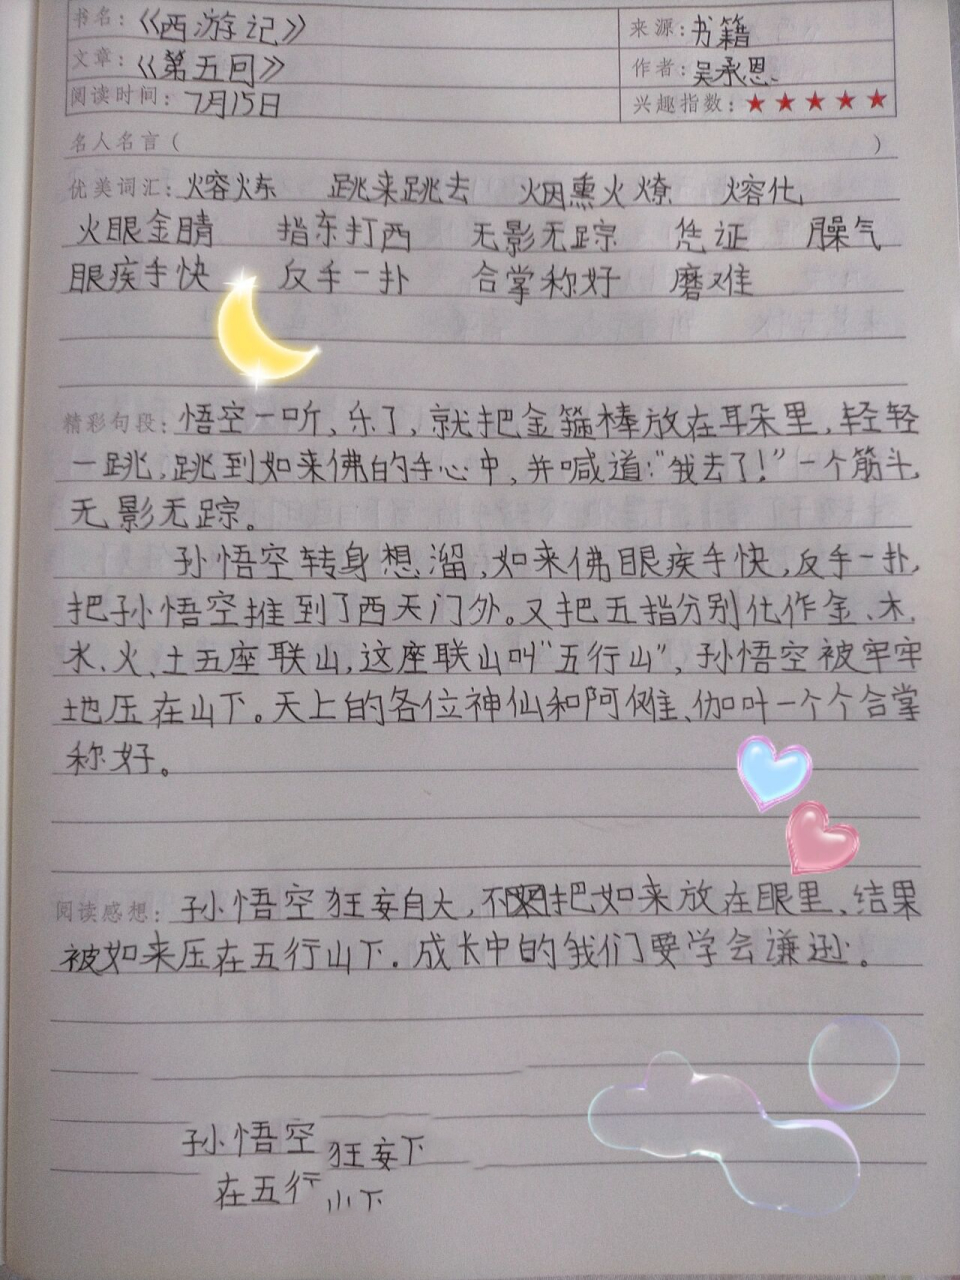 书名：《西游记》 来源：书籍
文章：《第五回》 作者：吴承恩
阅读时间：7月15日 兴趣指数：★★★★★
名人名言（ ）
优美词汇：熔炼 跳来跳去 烟熏火燎 熔化
火眼金睛 指东打西 无影无踪 凭证 臊气
眼疾手快 反手一扑 合掌称好 磨难
精彩句段：悟空一听，乐了，就把金箍棒放在耳朵里，轻轻
一跳，跳到如来佛的手心中，并喊道：“我去了！”一个筋斗，
无影无踪。
孙悟空转身想溜，如来佛眼疾手快，反手一扑，
把孙悟空推到了西天门外。又把五指分别化作金、木、
水、火、土五座联山，这座联山叫“五行山”，孙悟空被牢牢
地压在山下。天上的各位神仙和阿傩、伽叶一个个合掌
称好。
阅读感想：孙悟空狂妄自大，不把如来放在眼里、结果
被如来压在五行山下。成长中的我们要学会谦逊。
孙悟空狂妄下
在五行山下